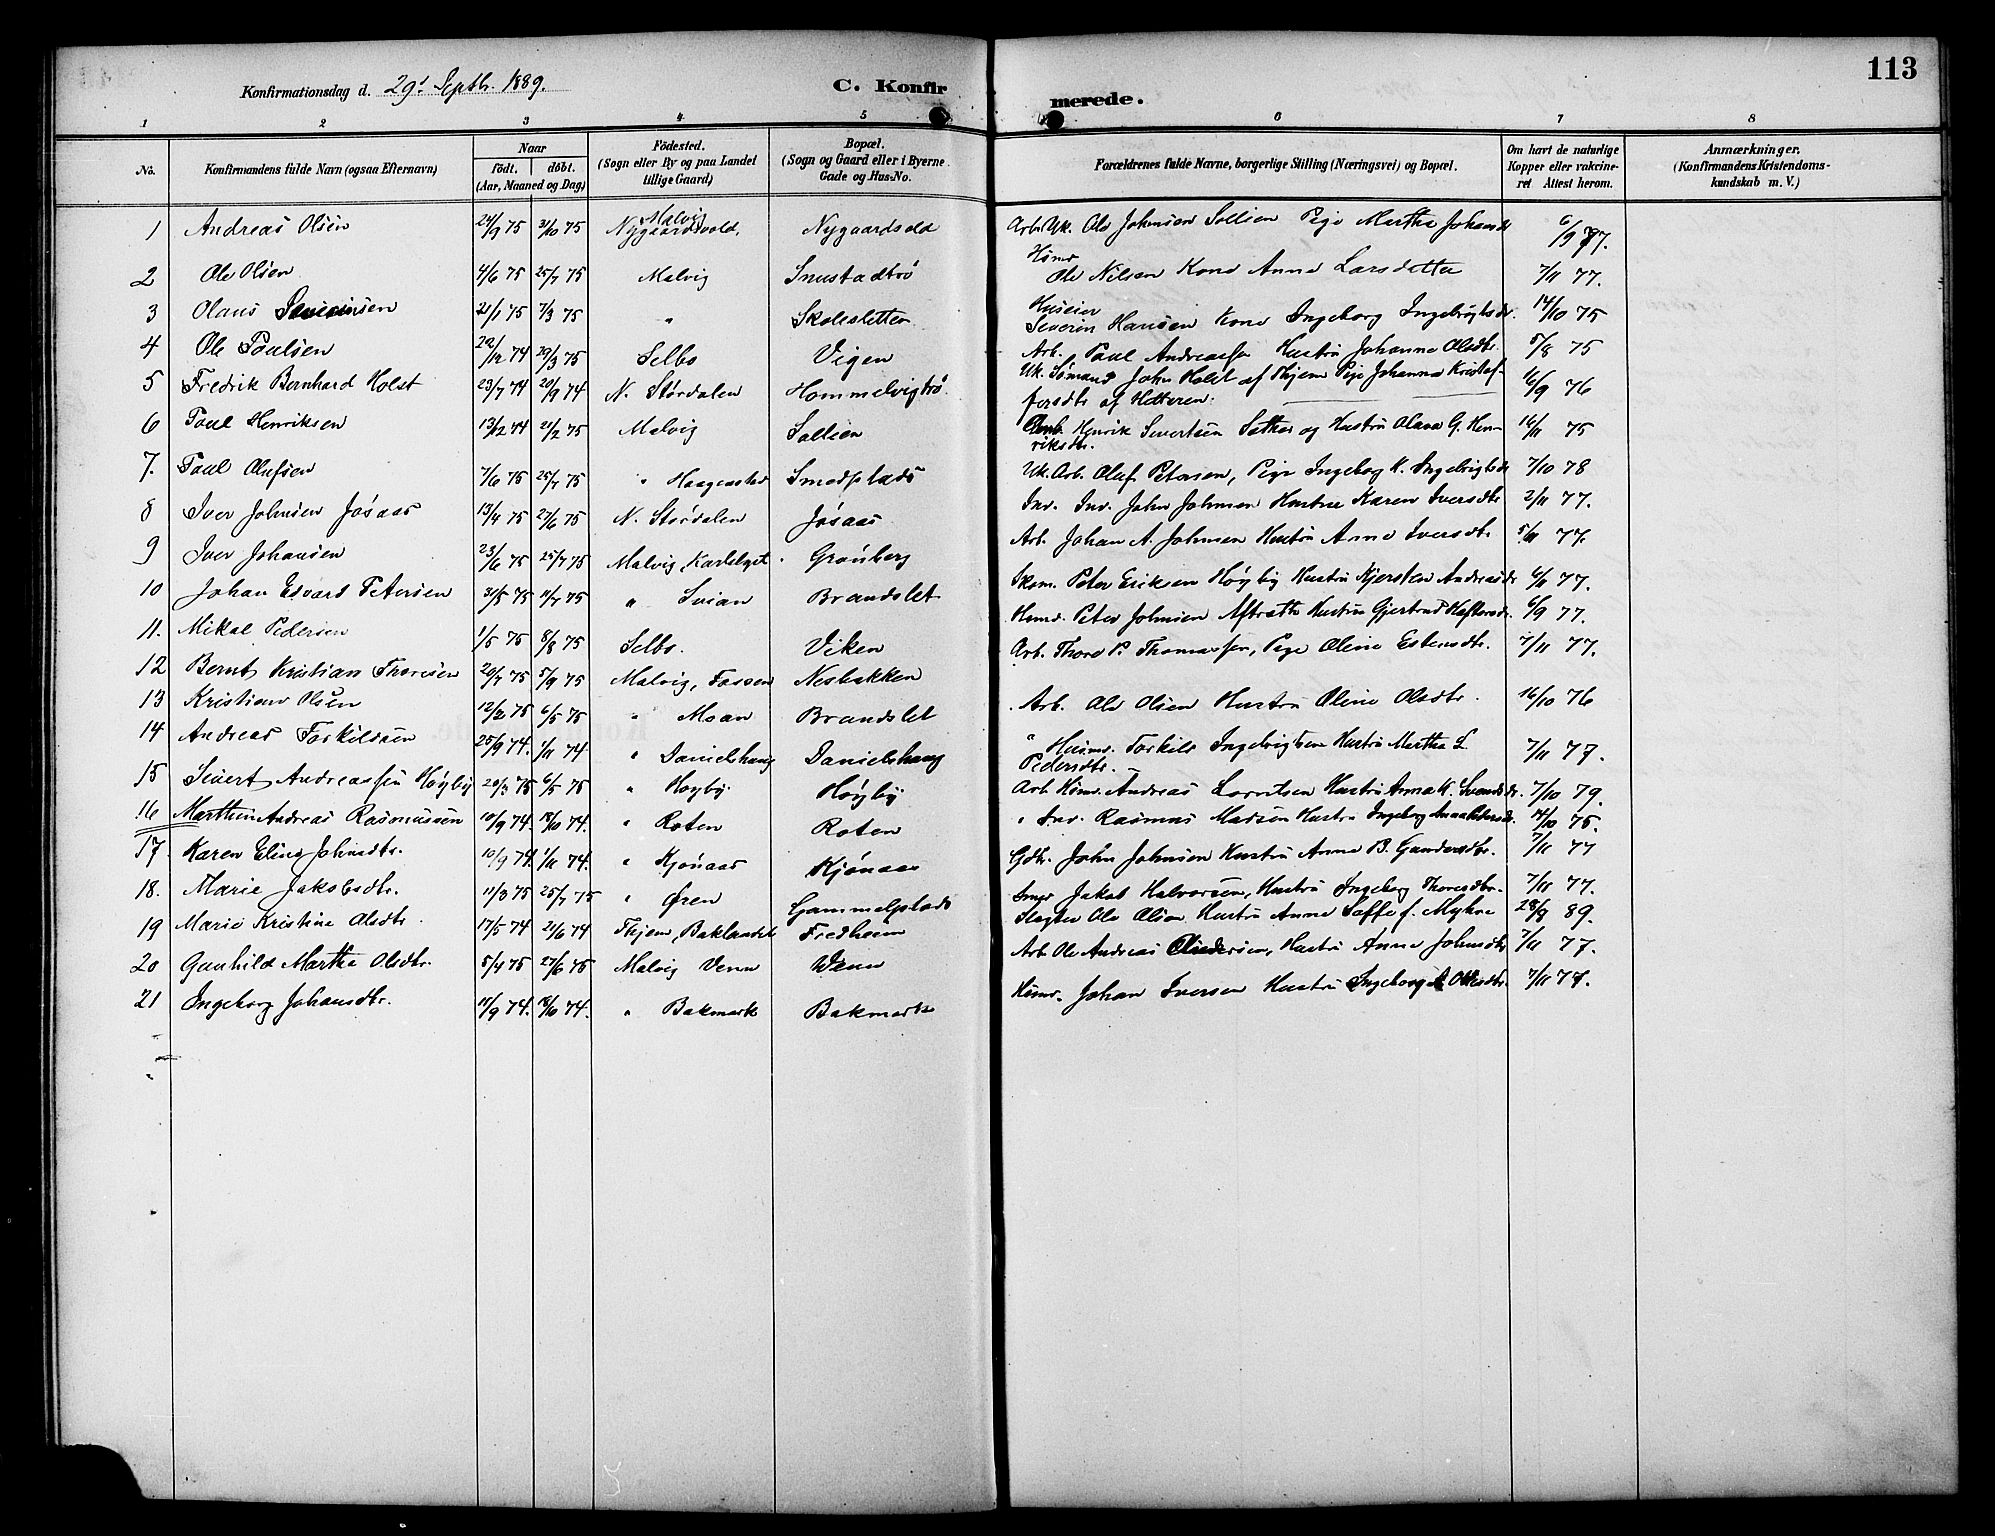 113
Konfirmationsdag d. 29d Septbr. 1889.
C. Konfirmerede.
1 2 3 4 5 6 7 8
No. Konfirmandens fulde Navn (ogsaa Efternavn) Naar født. døbt. (Aar, Maaned og Dag) Fødested. (Sogn eller By og paa Landet tillige Gaard) Bopæl. (Sogn og Gaard eller i Byerne Gade og Hus-No. Forældrenes fulde Navne, borgerlige Stilling (Næringsvei) og Bopæl. Om havt de naturlige Kopper eller vakcineret Attest herom. Anmærkninger. (Konfirmandens Kristendomskundskab m. V.)
1 Andreas Olsen 24/9 75 31/10 75 Malvig Nygaardsvold, Nygaardsvld Arb. Uk. Ole Johnsen Sollien Pige Martha Johansd 6/9 77.
2 Ole Olsen 4/6 75 25/7 75 Malvig Snustadtrø Hsmd Ole Nilsen Kone Anne Larsdatter 7/11 77.
3 Olaus Severinsen 21/1 75 7/3 75 " Skolesletten Huseier Severin Hansen Kone Ingeborg Ingebrigtsdr. 14/10 75
4 Ole Paulsen 22/12 74 29/3 75 Selbo Vigen Arb. Paul Andreassen Hustru Johanna Olsdtr. 5/8 75
5 Fredrik Bernhard Holst 23/7 74 20/9 74 N. Størdalen Hommelvigtrø. Uk. Sømand John Holst af Thjem Pige Johanna Kristoffersdtr af Hitteren. 16/9 76
6 Paul Henriksen 13/12 74 21/2 75 Malvig Sollien Arb. Henrik Sivertsen Sæther og Hustru Olava G. Henriksdtr. 16/11 75
7. Paul Olufsen 7/6 75 25/7 75 " Haagenstad Smedplads Uk. Arb. Oluf Petersen, Pige Ingeborg K. Ingebrigtsd 7/10 78
8 Iver Johnsen Jøsaas 13/4 75 27/6 75 N. Størdalen Jøsaas Inv. Inv. John Johnsen Hustru Karen Iversdtr 2/11 77.
9 Iver Johansen 23/6 75 25/7 75 Malvig, Karlslyst Grønberg Arb. Johan A. Johnsen Hustru Anne Iversdtr 5/11 77.
10 Johan Edvard Petersen 31/5 75 11/7 75 " Svian Brandslet Skom. Peter Eriksen Høyby Hustru Kjersten Andreasdr 6/11 77.
11. Mikal Pedersen 1/5 75 8/8 75 Selbo. Viken Husmd. Peter Johnsen Aftræth Hustru Gjertrud Haftorsdr. 6/9 77.
12 Bernt Kristian Thoresen 20/7 75 5/9 75 Malvig, Fossen Nesbakken Arb. Thore P. Thomassen, Pige Oline Estensdtr. 7/11 77.
13 Kristian Olsen 12/2 75 6/5 75 " Moan Brandslet Arb. Ole Olsen Hustru Oline Olsdtr. 16/10 76
14 Andreas Torkildsen 25/9 74. 1/11 74 " Danielshaug Danielshaug " Husmd. Torkild Ingebrigtsen Hustru Martha L. Pedersdtr. 7/11 77.
15 Sivert Andreassen Høyby 20/3 75 6/5 75 " Høyby. Høyby Arb. Hsmd. Andreas Lorntsen Hustru Anna K. Svendsdr. 7/10 79.
16 Marthin Andreas Rasmussen 10/9 74. 18/10 74. " Roten Roten " Inv. Rasmus Madsen Hustru Ingeborg Anna Pedersdr. 14/10 75.
17 Karen Elina Johnsdtr. 10/9 74. 1/11 74. " Kjønaas Kjønaas Gdbr. John Johnsen Hustru Anne B. Gundersdtr. 7/11 77
18. Marie Jakobsdtr. 11/3 75 25/7 75 " Øren Gammelplads Jakob Halvorsen, Hustru Ingeborg Thoresdtr. 7/11 77.
19 Marie Kristine Olsdtr. 17/5 74 21/6 74 Thjem, Baklandet Fredheim Slagter Ole Olsen Hustru Anna Soffie f. Myhre 28/8 89.
20 Gunhild Martha Olsdtr. 5/4 75 27/6 75 Malvig Venn Wenn Arb. Ole Andreas Hustru Anne Johnsdtr 7/11 77.
21 Ingeborg Johansdtr. 11/9 74. 18/10 74. " Bakmark Bakmark Hsmd. Johan Iversen Hustru Ingeborg A Olsdtr. 7/11 77.